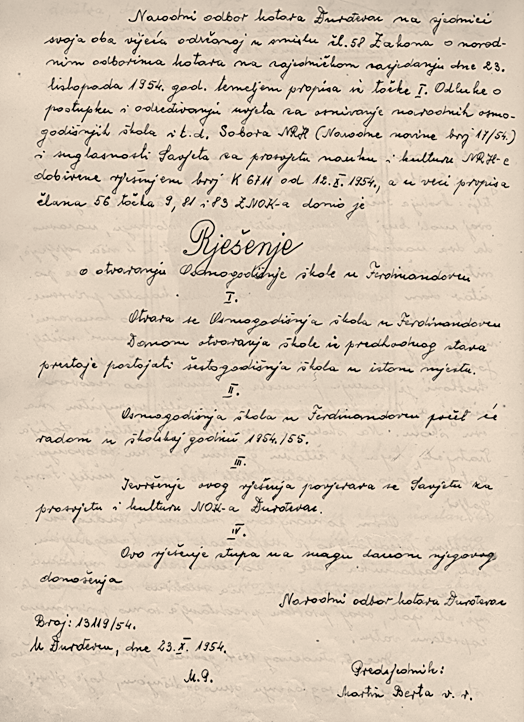 Narodni odbor kotara Đurđevac na sjednici
svoja oba vijeća održanoj u smislu čl. 58 Zakona o narod-
nim odborima kotara na zajedničkom zasjedanju dne 23.
listopada 1954. god. temeljem propisa iz točke I. Odluke o
postupku i određivanju uvjeta za osnivanje narodnih osmo-
godišnjih škola i t. d. Sabora NRH (Narodne novine broj 17/54.)
i suglasnosti Savjeta za prosvjetu nauku i kulturu NRH-e
dobivene rješenjem broj K 6711 od 12. X. 1954., a u vezi propisa
člana 56 točka 9, 81 i 83 ZNOK-a donio je
Rješenje
o otvaranju Osmogodišnje škole u Ferdinandovcu
I.
Otvara se Osmogodišnja škola u Ferdinandovcu
Danom otvaranja škole iz predhodnog stava
prestaje postojati šestogodišnja škola u istom mjestu.
II.
Osmogodišnja škola u Ferdinandovcu počet će
radom u školskoj godini 1954./55.
III.
Izvršenje ovog rješenja povjerava se Savjetu za
prosvjetu i kulturu NOK-a Đurđevac.
IV.
Ovo rješenje stupa na snagu danom njegovog
donošenja
Narodni odbor kotara Đurđevac
Broj: 13119/54.
U Đurđevcu, dne 23. X. 1954.
M. P.
Predsjednik:
Martin Berta v. r.